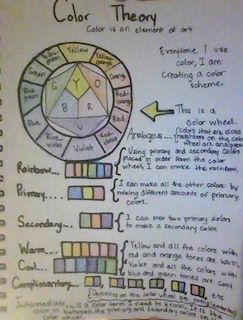 Color Theory
Color is an element of art
Everytime I use
color, I am
creating a color
scheme.
Yellow
Yellow orange
Orange
Red orange
Red
Red violet
Violet
Blue violet
Blue
Blue green
Green
Yellow green
Y
O
R
V
B
G
This is a
color wheel.
Analogous... (colors that are close
neighbors on the color
wheel are analogous)
Rainbow...
Using primary and secondary colors
placed in order from the color
wheel, I can make the rainbow.
Primary...
I can make all the other colors by
mixing different amounts of primary
colors.
Secondary...
I can mix two primary colors
to make a secondary color.
Warm...
Yellow and all the colors with
red and orange tones are warm.
Cool...
Violet and all the colors with
blue and green tones are cool
Complementary...
etc
Opposites on the color wheel are complementary
Intermediate... is a color term I need to know. It is the
color in between the primary and secondary colors on the
color wheel.